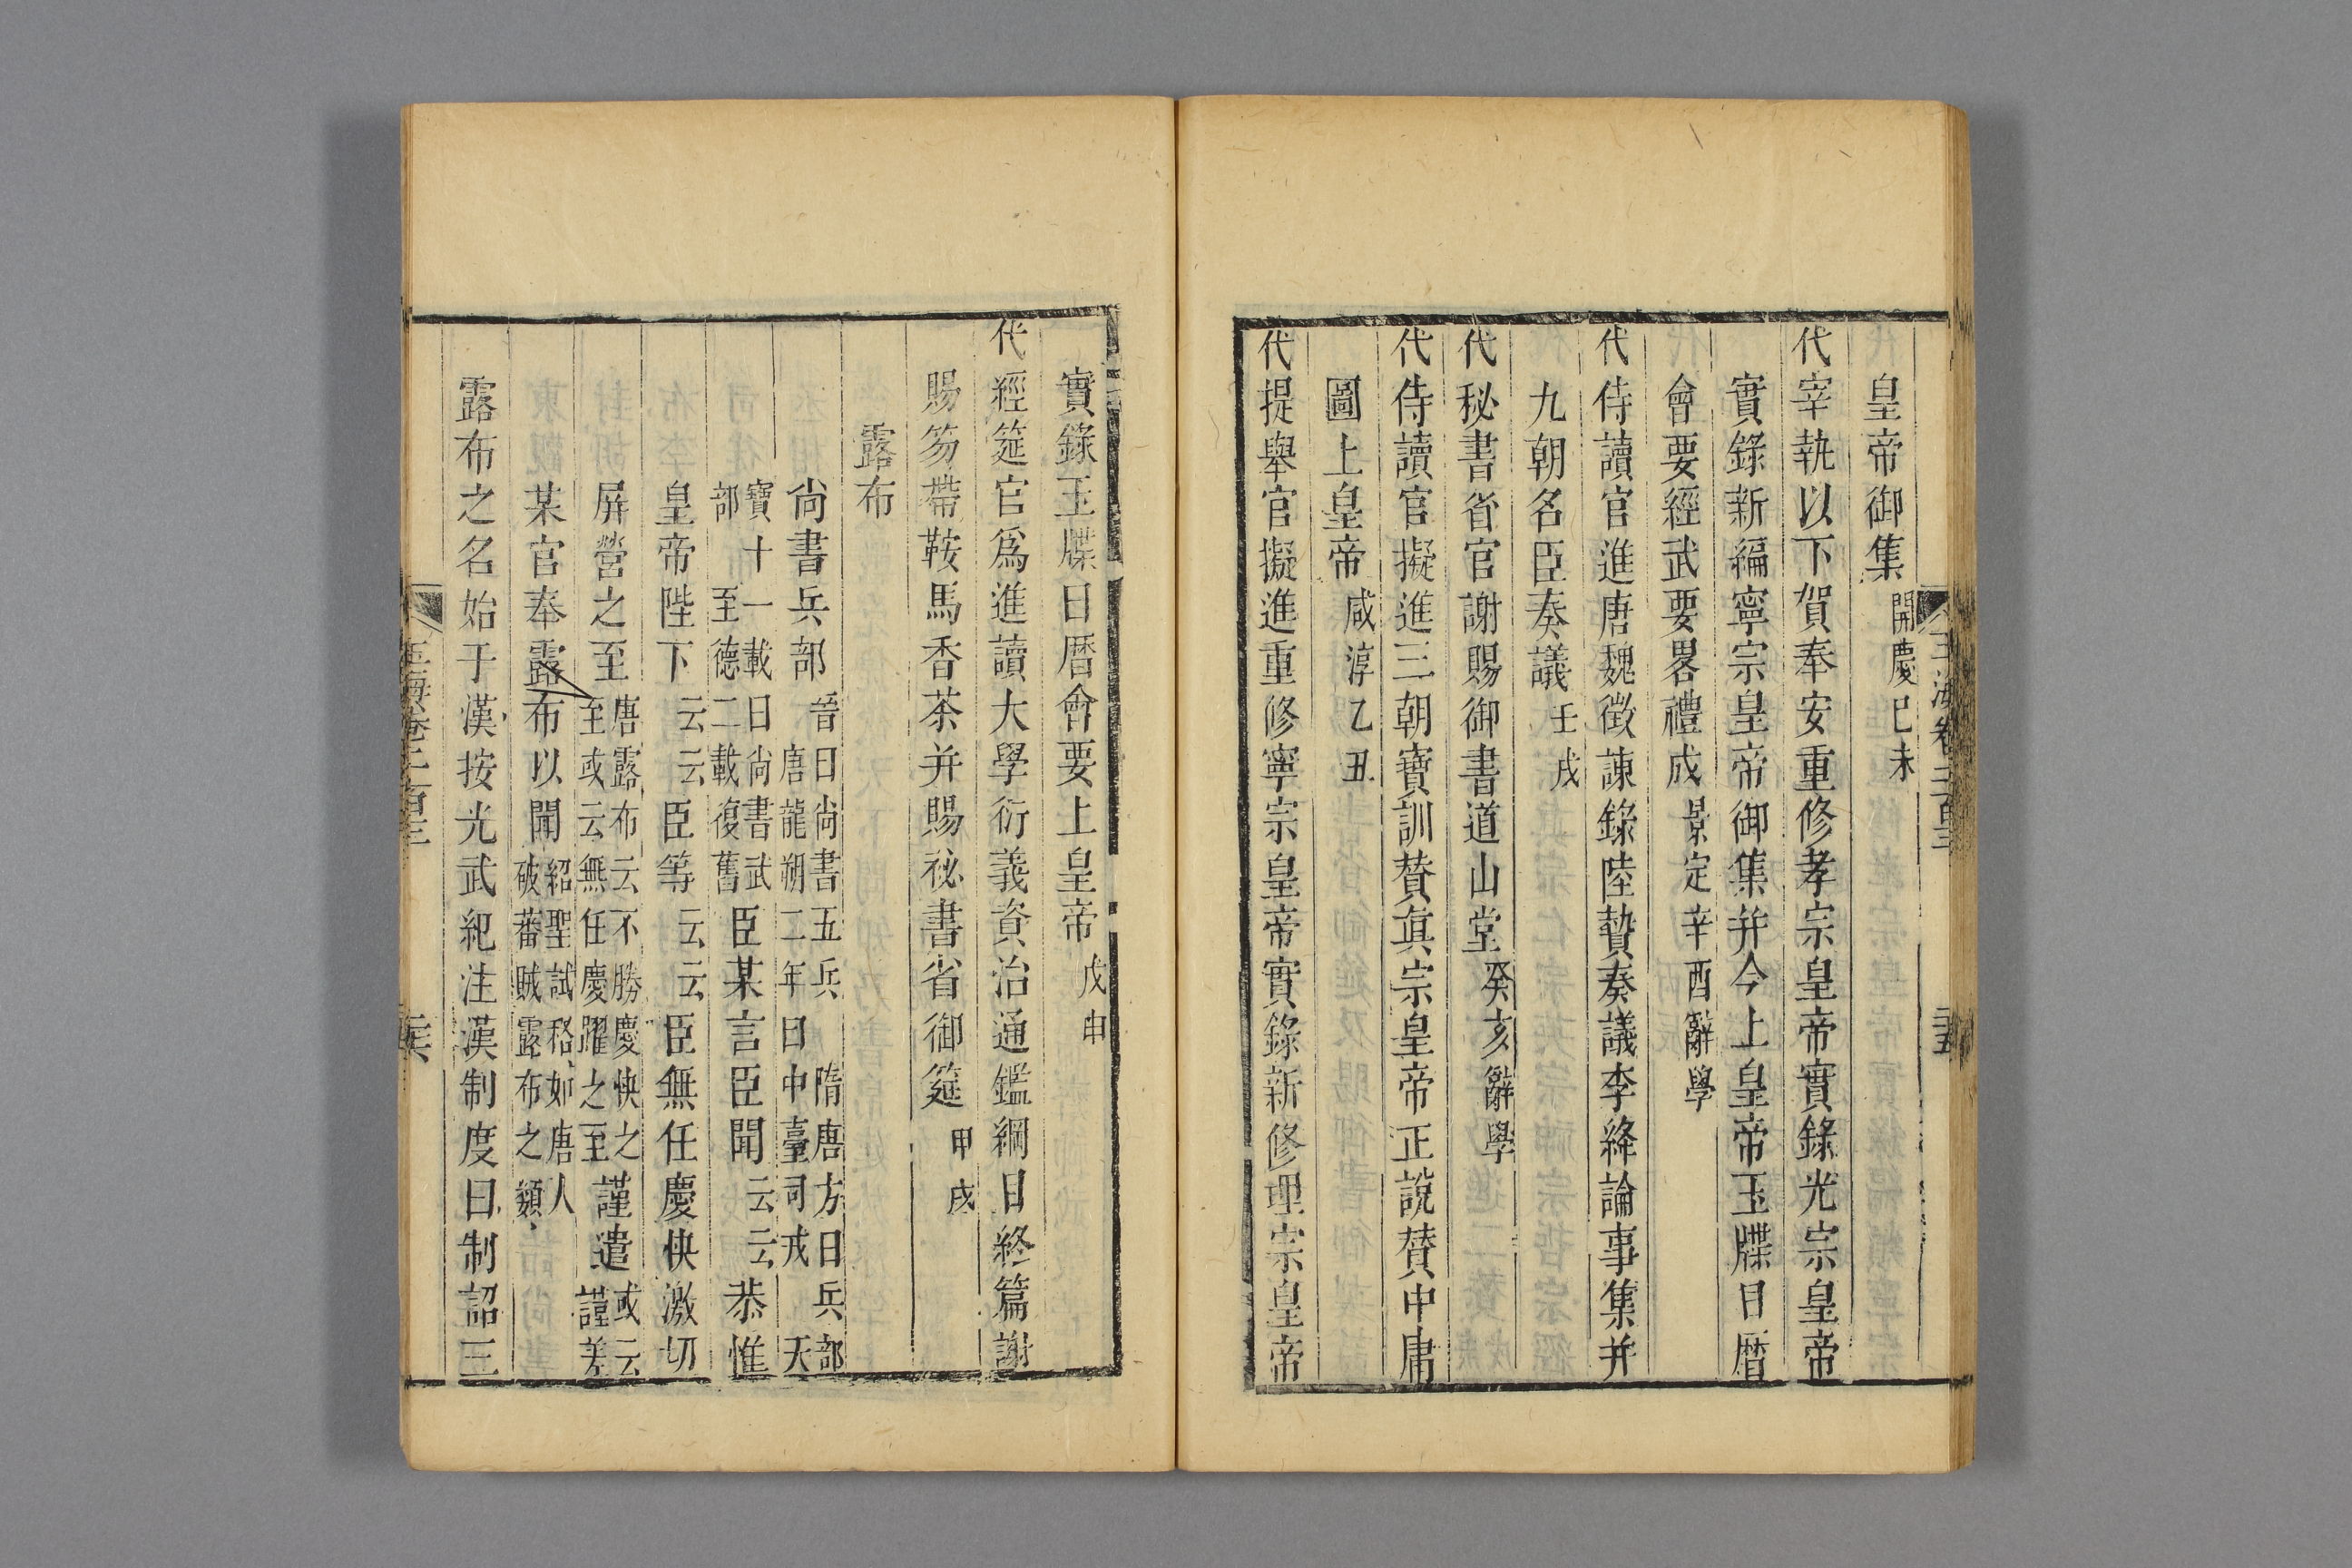 皇帝御集開慶己未
代宰執以下賀奉安重修孝宗皇帝實錄光宗皇帝
實錄新編寧宗皇帝御集并今上皇帝玉牒日曆
會要經武要畧禮成景定辛酉辭學
代侍讀官進唐魏徵諫錄陸贄奏議李絳論事集并
九朝名臣奏議壬戌
代秘書省官謝賜御書道山堂癸亥辭學
代侍讀官擬進三朝寶訓贊眞宗皇帝正說贊中庸
圖上皇帝咸淳乙丑
代提舉官擬進重修寧宗皇帝實錄新修理宗皇帝
實錄玉牒日曆會要上皇帝戊申
代經筵官爲進讀大學衍義資治通鑑綱目終篇謝
賜笏帶鞍馬香茶并賜祕書省御筵甲戌
露布
尚書兵部晉曰尚書五兵 隋唐方曰兵部
唐龍朔二年曰中臺司戎 天
寶十一載曰尚書武
部 至德二載復舊臣某言臣聞云云恭惟
皇帝陛下云云臣等云云臣無任慶快激切
屏營之至唐露布云不勝慶快之
至或云無任慶躍之至謹遣或云
謹差
某官奉露布以聞紹聖試格如唐人
破蕃賊露布之類
露布之名始于漢按光武紀注漢制度曰制詔三
玉海卷二百三